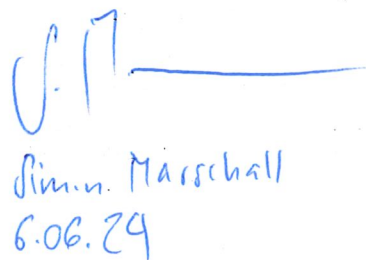 S. M.
Simon Marschall
6.06.24